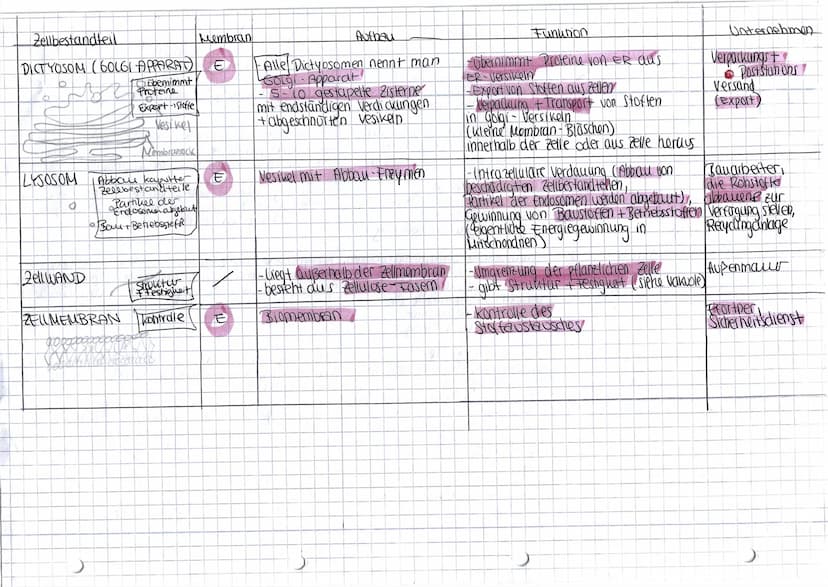 Zellbestandteil
Membran
Aufbau
Funktion
Unternehmen
DICTYOSOM (GOLGI APPARAT)
übernimmt
Proteine
Export
Vesikel
E
Alle Dictyosomen nennt man
Golgi-Apparat
- 5-10 gestapelte Zisterne
mit endständigen Verdickungen
+ abgeschnürten Vesikeln
- übernimmt Proteine von ER aus
ER-Versikeln
- Export von Stoffen aus Zellen
- Verpackung + Transport von Stoffen
in Golgi-Versikeln
(kleine Membran-Bläschen)
innerhalb der Zelle oder aus Zelle heraus
Verpackungs +
Poststations
versand
(Export)
LYSOSOM
Abbau kaputter
Zellbestandteile
Partikel der
Endosomen abgebaut
Bau + Betriebsstoffe
E
Vesikel mit Abbau-Enzymen
- Intrazelluläre Verdauung (Abbau von
beschädigten Zellbestandteilen,
Partikel der Endosomen werden abgebaut),
Gewinnung von Baustoffen + Betriebsstoffen
(eigentliche Energiegewinnung in
Bauarbeiter,
die Rohstoffe
abbauen + zur
Verfügung stellen,
Recyclinganlage
ZELLWAND
Struktur
+ Festigkeit
- liegt außerhalb der Zellmembran
- besteht aus Zellulose-Fasern
- Umgrenzung der pflanzlichen Zelle
- gibt Struktur + Festigkeit (siehe Vakuole)
Außenmauer
ZELLMEMBRAN
Kontrolle
E
Biomembran
- Kontrolle des
Stoffaustausches
Pförtner,
Sicherheitsdienst